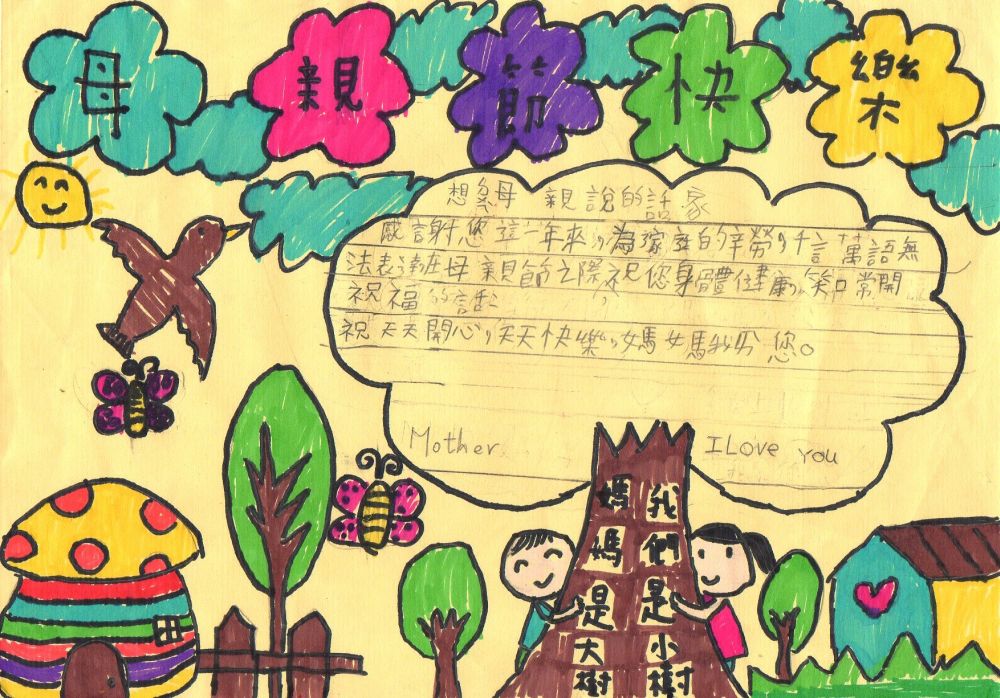 母親節快樂
想母親說的話家
感謝您這一年來,為家庭的辛勞,千言萬語無
法表達在母親節之際祝您身體健康,笑口常開
祝福的話
祝天天開心,天天快樂,媽媽我您。
Mother I Love You
媽媽是大樹
我們是小樹